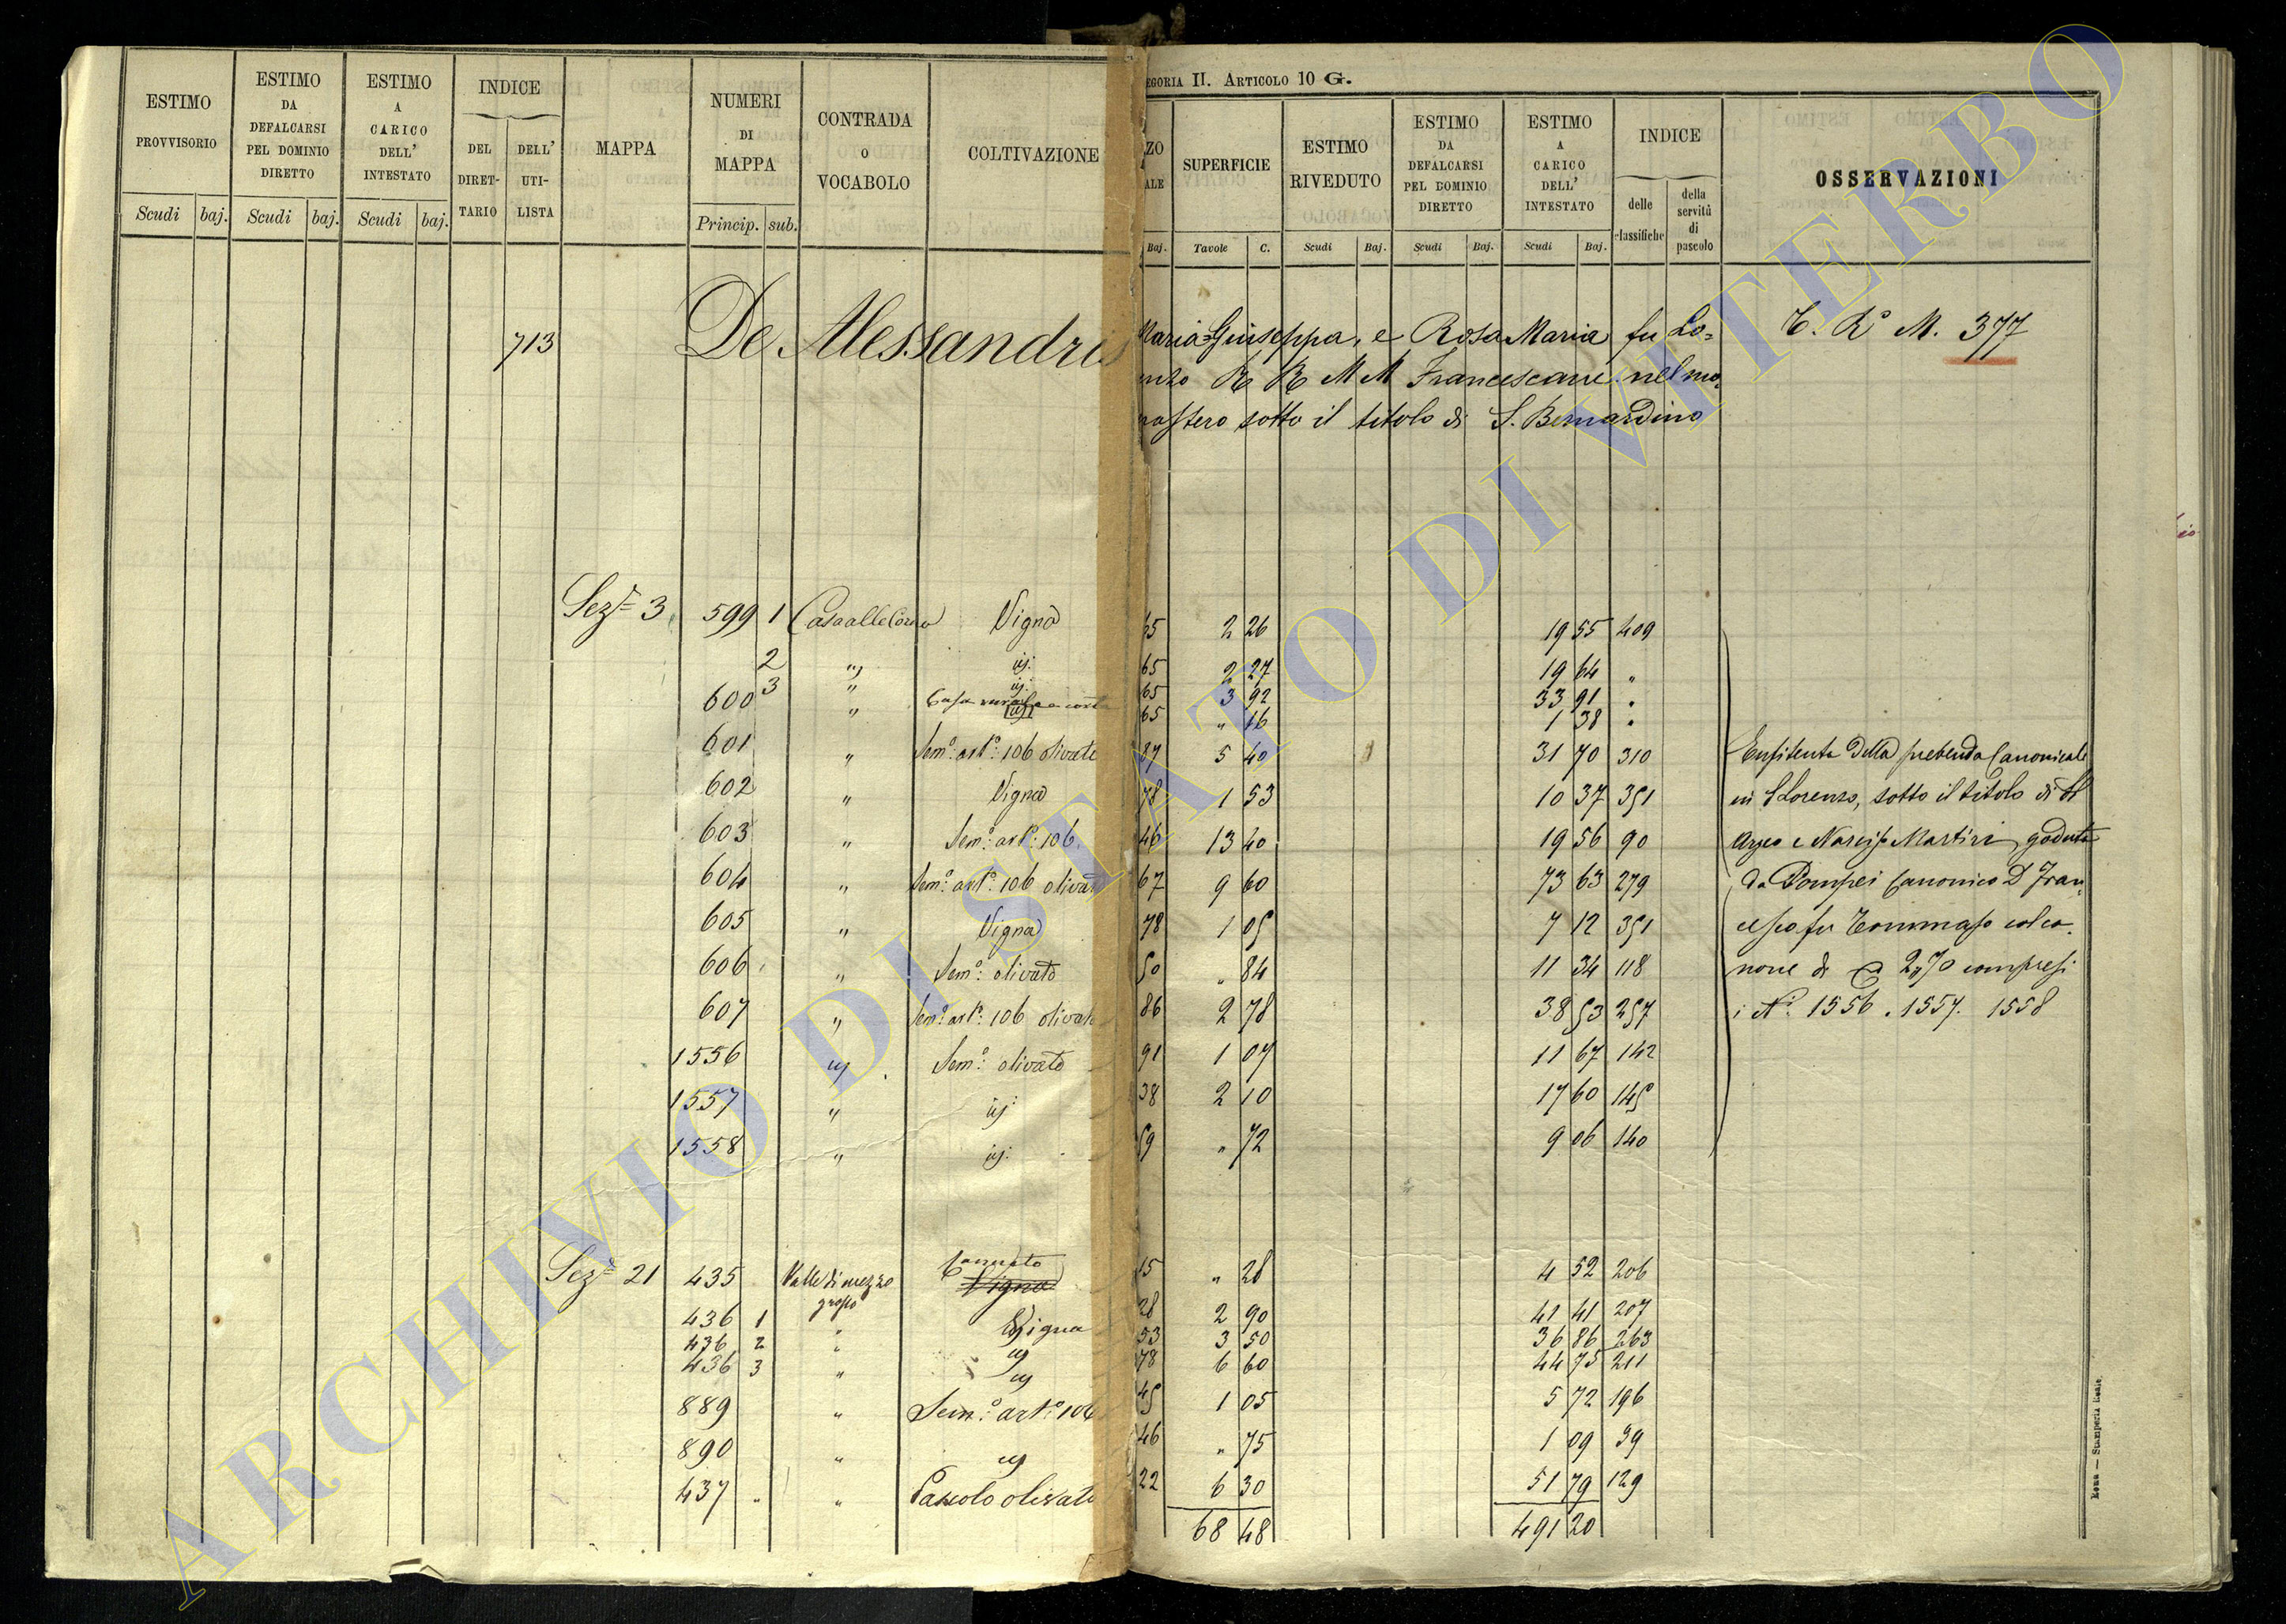 ESTIMO PROVVISORIO Scudi baj.
ESTIMO DA DEFALCARSI PEL DOMINIO DIRETTO Scudi baj.
ESTIMO A CARICO DELL' INTESTATO Scudi baj.
INDICE DEL DIRET- TARIO DELL' UTI- LISTA
MAPPA
NUMERI DI MAPPA Princip. sub.
CONTRADA O VOCABOLO
COLTIVAZIONE
EGORIA II. ARTICOLO 10 G.
ZO ALE Baj.
SUPERFICIE Tavole C.
ESTIMO RIVEDUTO Scudi Baj.
ESTIMO DA DEFALCARSI PEL DOMINIO DIRETTO Scudi Baj.
ESTIMO A CARICO DELL' INTESTATO Scudi Baj.
INDICE delle classifiche della servitù di pascolo
OSSERVAZIONI
713 De Alessandris Maria Giuseppa, e Rosa Maria fu Lo= T. Rº M. 377
enzo R R M M Francescane nel mo=
nastero sotto il titolo di S. Bernardino
Sezᵉ 3 599 1 Vigna 65 2 26 19 55 409
2 " id: 65 2 27 19 64 "
3 " id: 65 3 92 33 91 "
600 " Casa rurale e corte 65 " 16 1 38 "
601 " Semº: artº: 106 olivato 87 5 40 31 70 310
602 " Vigna 78 1 53 10 37 351
603 " Semº: artº: 106 46 13 40 19 56 90
604 " Semº: artº: 106 olivato 67 9 60 73 63 279
605 " Vigna 78 1 05 7 12 351
606 " Semº: olivato 50 " 84 11 34 118
607 " Semº: artº: 106 olivato 86 2 78 38 53 257
1556 " Semº: olivato 91 1 07 11 67 142
1557 " id: 38 2 10 17 60 145
1558 " id: 59 " 72 9 06 140
Enfiteuta della prebenda Canonicale
in S Lorenzo, sotto il titolo di
Argeo e Narciso Martiri goduta
da Pompei Canonico D Fran=
cesco fu Tommaso col ca=
none di 2,70 compresi
i Nº: 1556. 1557. 1558
Sezᵉ 21 435 Valle di mezzo grosso Canneto Vigna 15 " 28 4 52 206
436 1 " Vigna 28 2 90 41 41 207
436 2 " id 53 3 50 36 86 263
436 3 " id 78 6 60 44 75 211
889 " Semº: artº: 106 45 1 05 5 72 196
890 " id 46 " 75 1 09 39
437 " " Pascolo olivato 22 6 30 51 79 129
68 48 491 20
Roma — Stamperia Reale.
ARCHIVIO DI STATO DI VITERBO